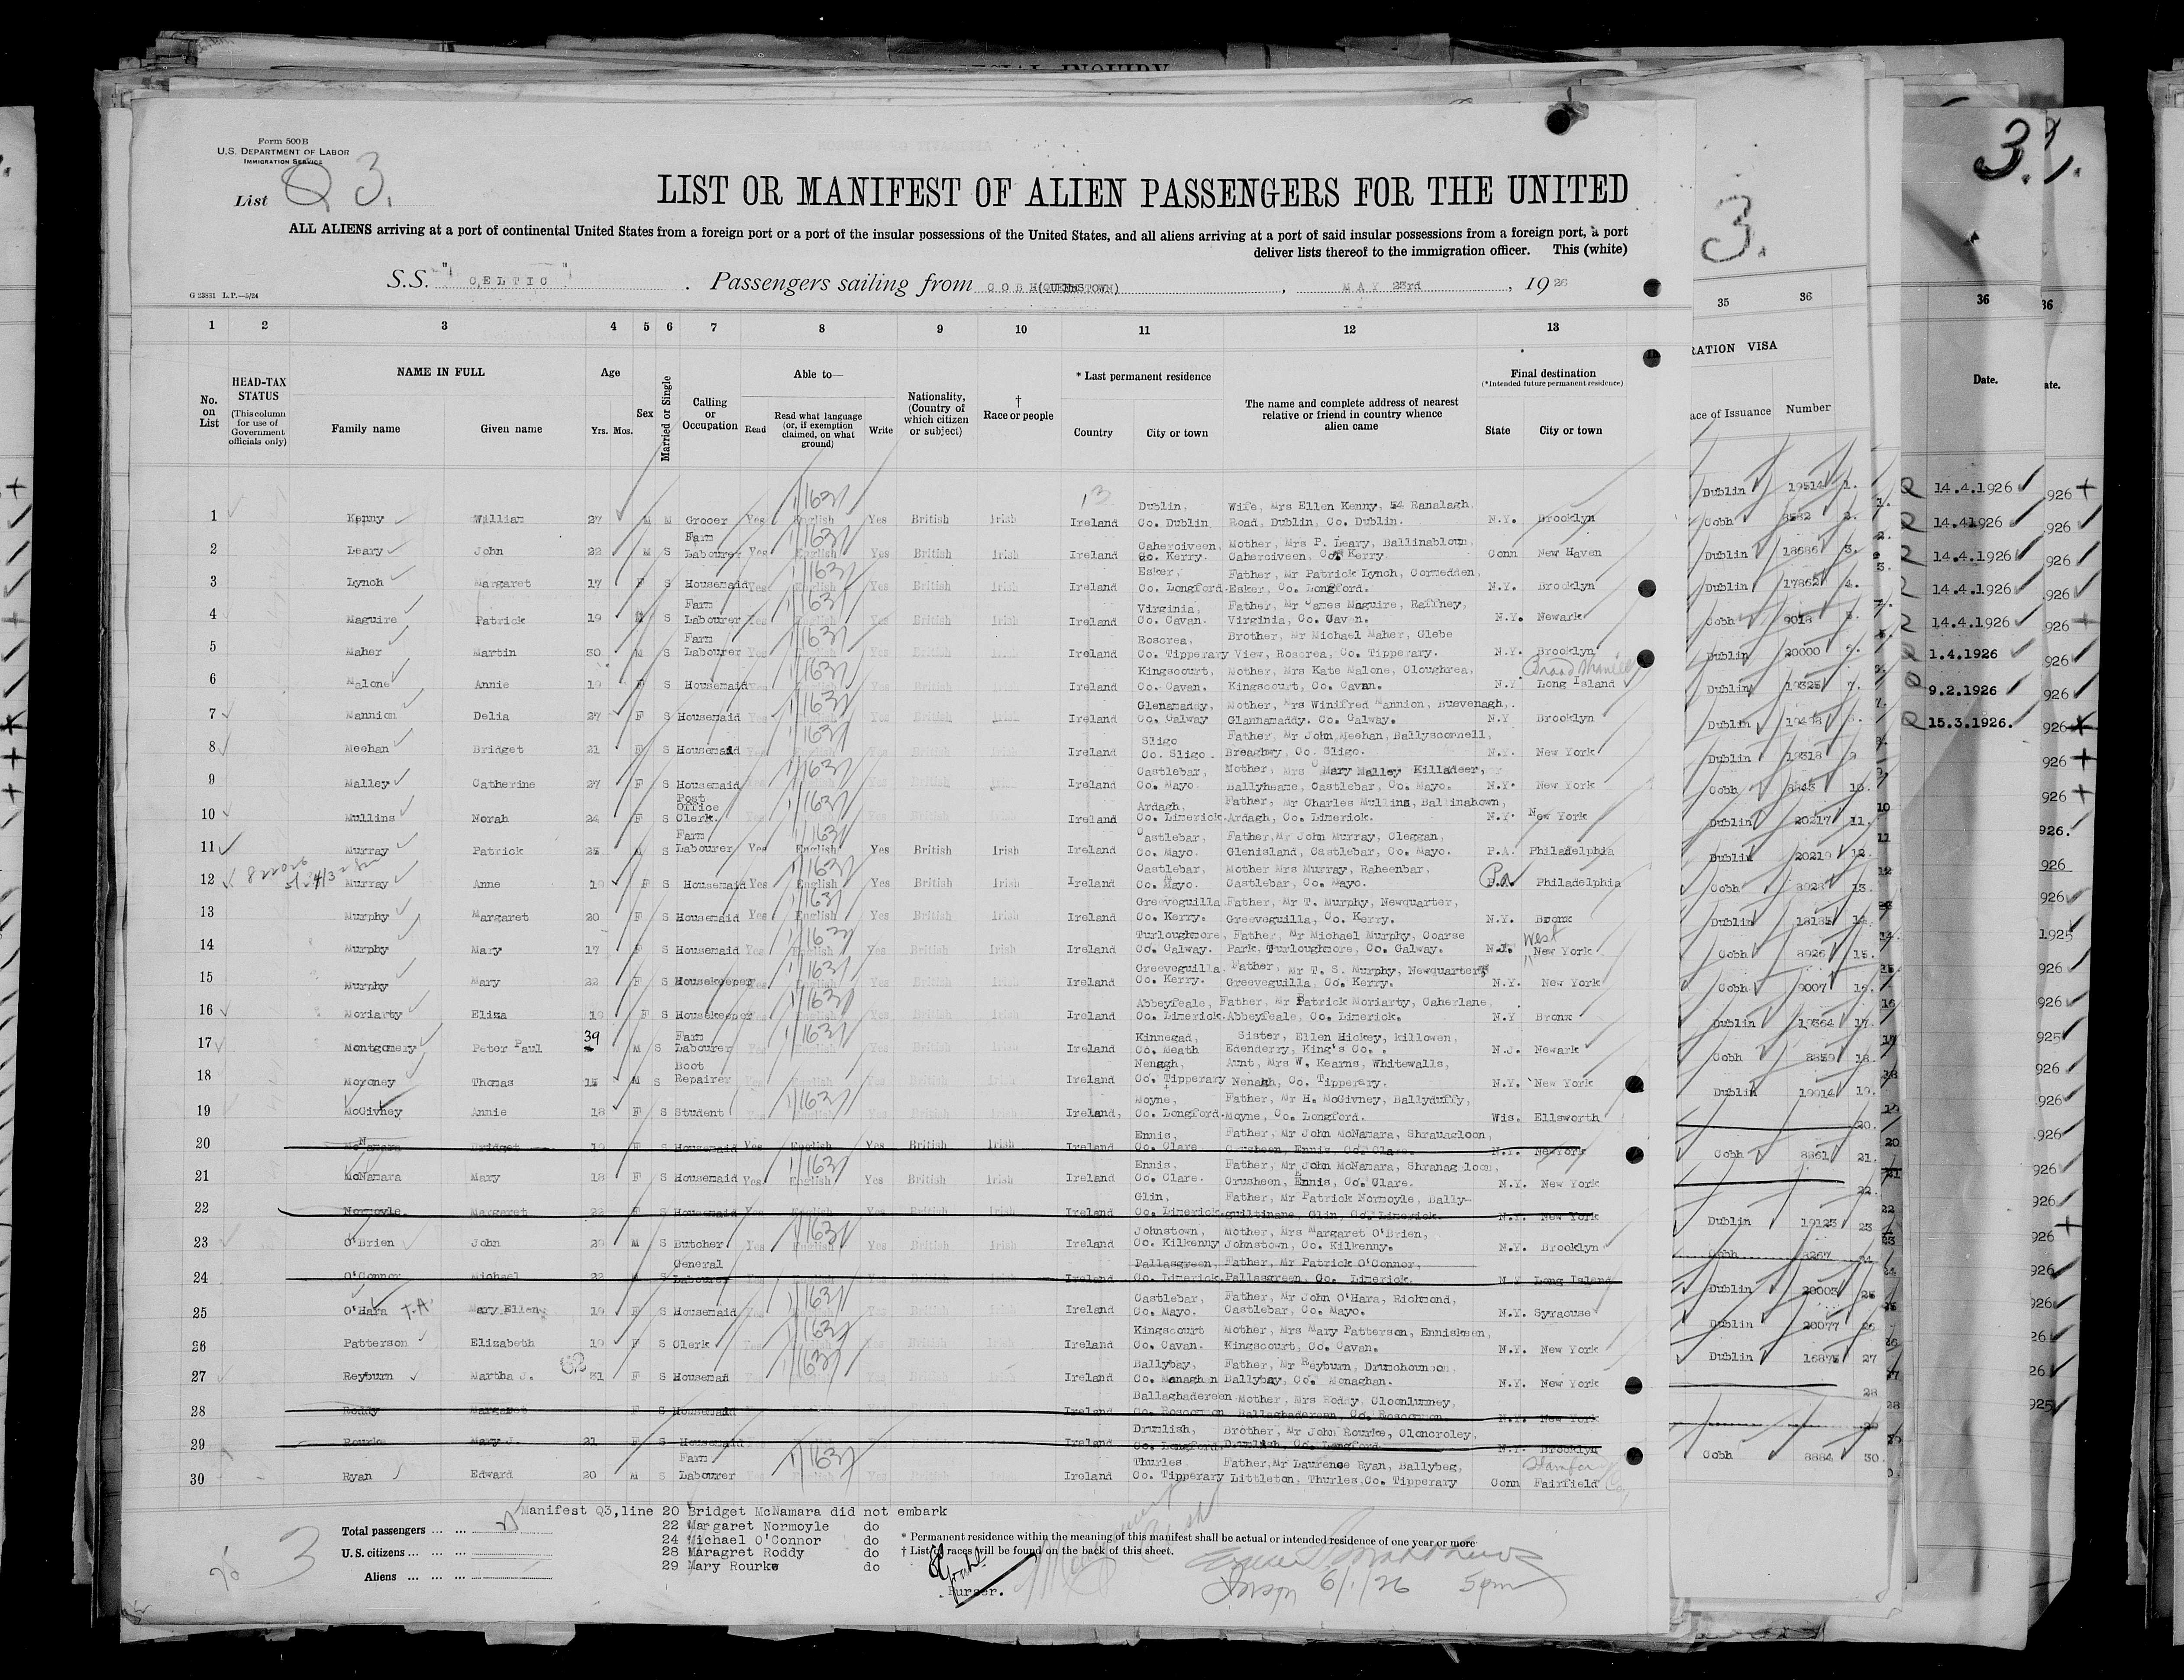 Form 500 B
U.S. DEPARTMENT OF LABOR
IMMIGRATION SERVICE
List Q 3.
LIST OR MANIFEST OF ALIEN PASSENGERS FOR THE UNITED
ALL ALIENS arriving at a port of continental United States from a foreign port or a port of the insular possessions of the United States, and all aliens arriving at a port of said insular possessions from a foreign port, a port
deliver lists thereof to the immigration officer. This (white)
S.S. "CELTIC". Passengers sailing from COBH(QUEENSTOWN), MAY 23rd, 1926
G 23831 L.P.—5/24
1 2 3 4 5 6 7 8 9 10 11 12 13
No. on List
HEAD-TAX STATUS (This column for use of Government officials only)
NAME IN FULL Family name Given name
Age Yrs. Mos.
Sex
Married or Single
Calling or Occupation
Able to— Read Read what language (or, if exemption claimed, on what ground) Write
Nationality, (Country of which citizen or subject)
† Race or people
* Last permanent residence Country City or town
The name and complete address of nearest relative or friend in country whence alien came
Final destination (*Intended future permanent residence) State City or town
1 Kenny William 27 M M Grocer Yes English Yes British Irish Ireland Dublin, Co. Dublin. Wife, Mrs Ellen Kenny, 54 Ranalagh, Road, Dublin, Co. Dublin. N.Y. Brooklyn
2 Leary John 22 M S Farm Labourer Yes English Yes British Irish Ireland Caherciveen, Co. Kerry. Mother, Mrs P. Leary, Ballinabloun, Caherciveen, Co. Kerry Conn New Haven
3 Lynch Margaret 17 F S Housemaid Yes English Yes British Irish Ireland Esker, Co. Longford. Father, Mr Patrick Lynch, Cormedden, Esker, Co. Longford. N.Y. Brooklyn
4 Maguire Patrick 19 M S Farm Labourer Yes English Yes British Irish Ireland Virginia, Co. Cavan. Father, Mr James Maguire, Raffney, Virginia, Co. Cavan. N.Y. Newark
5 Maher Martin 30 M S Farm Labourer Yes English Yes British Irish Ireland Roscrea, Co. Tipperary Brother, Mr Michael Maher, Glebe View, Roscrea, Co. Tipperary. N.Y. Brooklyn
6 Malone Annie 19 F S Housemaid Yes English Yes British Irish Ireland Kingscourt, Co. Cavan. Mother, Mrs Kate Malone, Cloughrea, Kingscourt, Co. Cavan. N.Y Long Island
7 Mannion Delia 27 F S Housemaid Yes English Yes British Irish Ireland Glenamaddy, Co. Galway Mother, Mrs Winifred Mannion, Buevenagh, Glannamaddy. Co. Galway. N.Y Brooklyn
8 Meehan Bridget 21 F S Housemaid Yes English Yes British Irish Ireland Sligo Co. Sligo. Father, Mr John Meehan, Ballysconnell, Breaghwy, Co. Sligo. N.Y. New York
9 Malley Catherine 27 F S Housemaid Yes English Yes British Irish Ireland Castlebar, Co. Mayo. Mother, Mrs Mary Malley Killadeer, Ballyheane, Castlebar, Co. Mayo. N.Y. New York
10 Mullins Norah 24 F S Post Office Clerk. Yes English Yes British Irish Ireland Ardagh, Co. Limerick. Father, Mr Charles Mullins, Ballinahown, Ardagh, Co. Limerick. N.Y. New York
11 Murray Patrick 25 M S Farm Labourer Yes English Yes British Irish Ireland Castlebar, Co. Mayo. Father, Mr John Murray, Cleggan, Glenisland, Castlebar, Co. Mayo. P.A. Philadelphia
12 Murray Anne 19 F S Housemaid Yes English Yes British Irish Ireland Castlebar, Co. Mayo. Mother Mrs Murray, Raheenbar, Castlebar, Co. Mayo. Pa. Philadelphia
13 Murphy Margaret 20 F S Housemaid Yes English Yes British Irish Ireland Greeveguilla Co. Kerry. Father, Mr T. Murphy, Newquarter, Greeveguilla, Co. Kerry. N.Y. Bronx
14 Murphy Mary 17 F S Housemaid Yes English Yes British Irish Ireland Turloughmore, Co. Galway. Father, Mr Michael Murphy, Coarse Park, Turloughmore, Co. Galway. N.J. West New York
15 Murphy Mary 22 F S Housekeeper Yes English Yes British Irish Ireland Greeveguilla Co. Kerry. Father, Mr T. S. Murphy, Newquarter, Greeveguilla, Co. Kerry. N.Y. New York
16 Moriarty Eliza 19 F S Housekeeper Yes English Yes British Irish Ireland Abbeyfeale, Co. Limerick. Father, Mr Patrick Moriarty, Caherlane, Abbeyfeale, Co. Limerick. N.Y Bronx
17 Montgomery Peter Paul 39 M S Farm Labourer Yes English Yes British Irish Ireland Kinnegad, Co. Meath Sister, Ellen Hickey, killowen, Edenderry, King's Co.. N.J. Newark
18 Moroney Thomas 15 M S Boot Repairer Yes English Yes British Irish Ireland Nenagh, Co. Tipperary Aunt, Mrs W. Kearns, Whitewalls, Nenagh, Co. Tipperary. N.Y. New York
19 McGivney Annie 18 F S Student Yes English Yes British Irish Ireland, Moyne, Co. Longford. Father, Mr H. McGivney, Ballyduffy, Moyne, Co. Longford. Wis. Ellsworth
20 McNamara Bridget 19 F S Housemaid Yes English Yes British Irish Ireland Ennis, Co. Clare Father, Mr John McNamara, Shranagloon, Crusheen, Ennis, Co. Clare. N.Y. NewYork
21 McNamara Mary 18 F S Housemaid Yes English Yes British Irish Ireland Ennis, Co. Clare. Father, Mr John McNamara, Shranagloon, Crusheen, Ennis, Co. Clare. N.Y. New York
22 Normoyle. Margaret 22 F S Housemaid Yes English Yes British Irish Ireland Glin, Co. Limerick. Father, Mr Patrick Normoyle, Bally-guiltinane, Glin, Co. Limerick. N.Y. New York
23 O'Brien John 29 M S Butcher Yes English Yes British Irish Ireland Johnstown, Co. Kilkenny Mother, Mrs Margaret O'Brien, Johnstown, Co. Kilkenny. N.Y. Brooklyn
24 O'Connor Michael 22 M S General Labourer Ireland Pallasgreen, Co. Limerick. Father, Mr Patrick O'Connor, Pallasgreen, Co. Limerick. N.Y Long Island
25 O'Hara T.A. Mary Ellen 19 F S Housemaid Yes English Yes British Irish Ireland Castlebar, Co. Mayo. Father, Mr John O'Hara, Richmond, Castlebar, Co. Mayo. N.Y. Syracuse
26 Patterson Elizabeth 19 F S Clerk Yes English Yes British Irish Ireland Kingscourt Co. Cavan. Mother, Mrs Mary Patterson, Enniskeen, Kingscourt, Co. Cavan. N.Y. New York
27 Reyburn Martha J. 31 F S Housemaid Yes Yes British Irish Ireland Ballybay, Co. Monaghan Father, Mr Reyburn, Ballybay, Co. Monaghan. N.Y. New York
28 Roddy Margaret F S Housemaid Ireland Ballaghadereen Co. Roscommon Mother, Mrs Roddy, Cloonlumney, Ballaghadereen, Co. Roscommon N.Y. New York
29 Rourke Mary J. 21 F S Housemaid Ireland Drumlish, Co. Longford. Brother, Mr John Rourke, Cloncroley, Drumlish, Co. Longford. N.Y. Brooklyn
30 Ryan Edward 20 M S Farm Labourer Yes English Yes British Irish Ireland Thurles, Co. Tipperary Father, Mr Laurence Ryan, Ballybeg, Littleton, Thurles, Co. Tipperary Conn Fairfield
Manifest Q3, line 20 Bridget McNamara did not embark
22 Margaret Normoyle do
24 Michael O'Connor do
28 Maragret Roddy do
29 Mary Rourke do
Total passengers ... ...
U.S. citizens ... ... ...
Aliens ... ... ...
3
* Permanent residence within the meaning of this manifest shall be actual or intended residence of one year or more
† List of races will be found on the back of this sheet.
Purser.
6/1/26 5pm
3.
35 36
RATION VISA
ace of Issuance Number
Dublin 19514 1.
Cobh 8582 2.
Dublin 18686 3.
Dublin 17862 4.
Cobh 9018 5.
Dublin 20000
Dublin 19325 7.
Dublin
Dublin 19318 9
Cobh 8843 10.
Dublin 20217 11.
Dublin 20219 12.
Cobh 8928 13.
Dublin 18185 14.
Cobh 8926 15.
Cobh 9007 16.
Dublin 19364 17.
Cobh 8859 18.
Dublin 19914 19.
20.
Cobh 8861 21.
22.
Dublin 19123 23
Cobh 8267 24
Dublin 20003 25
Dublin 20077 26
Dublin 16875 27
28
29
Cobh 8884 30.
3.
36
Date.
14.4.1926
14.41926
14.4.1926
14.4.1926
14.4.1926
1.4.1926
9.2.1926
15.3.1926.